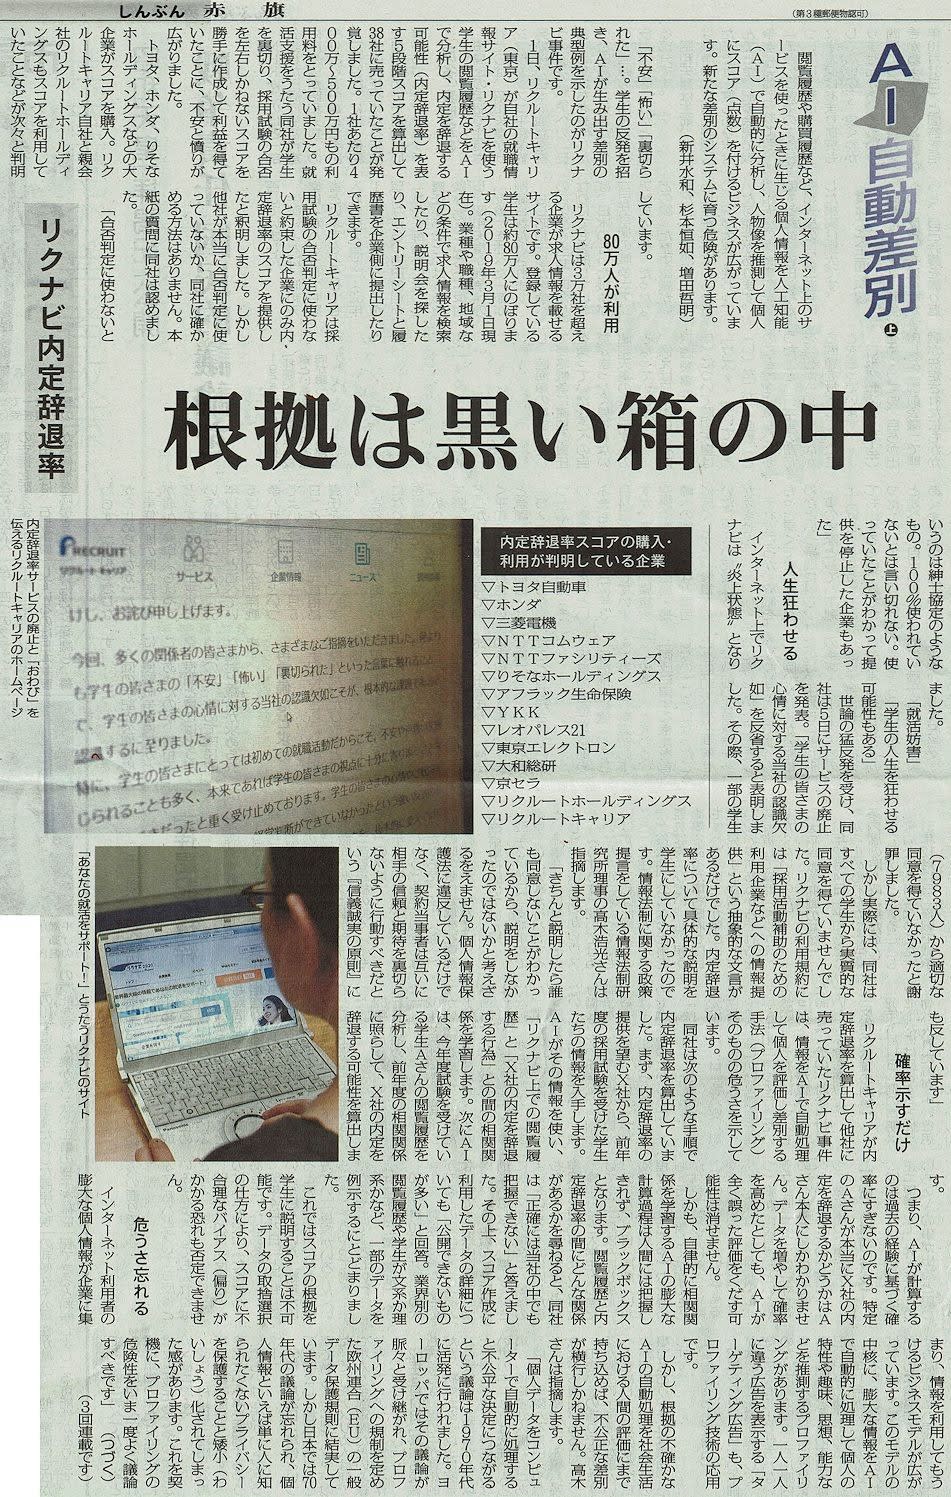 しんぶん 赤旗
(第3種郵便物認可)
AI自動差別 上
閲覧履歴や購買履歴など、インターネット上のサ
ービスを使ったときに生じる個人情報を人工知能
(AI)で自動的に分析し、人物像を推測して個人
にスコア(点数)を付けるビジネスが広がっていま
す。新たな差別のシステムに育つ危険があります。
(新井水和、杉本恒如、増田哲明)
根拠は黒い箱の中
リクナビ内定辞退率
「不安」「怖い」「裏切ら
れた」…。学生の反発を招
き、AIが生み出す差別の
典型例を示したのがリクナ
ビ事件です。
1日、リクルートキャリ
ア(東京)が自社の就職情
報サイト・リクナビを使う
学生の閲覧履歴などをAI
で分析し、内定を辞退する
可能性(内定辞退率)を表
す5段階スコアを算出して
38社に売っていたことが発
覚しました。1社あたり4
00万〜500万円もの利
用料をとっていました。就
活支援をうたう同社が学生
を裏切り、採用試験の合否
を左右しかねないスコアを
勝手に作成して利益を得て
いたことに、不安と憤りが
広がりました。
トヨタ、ホンダ、りそな
ホールディングスなどの大
企業がスコアを購入。リク
ルートキャリア自社と親会
社のリクルートホールディ
ングスもスコアを利用して
いたことなどが次々と判明
しています。
80万人が利用
リクナビは3万社を超え
る企業が求人情報を載せる
サイトです。登録している
学生は約80万人にのぼりま
す(2019年3月1日現
在)。業種や職種、地域な
どの条件で求人情報を検索
したり、説明会を探した
り、エントリーシートと履
歴書を企業側に提出したり
できます。
リクルートキャリアは採
用試験の合否判定に使わな
いと約束した企業にのみ内
定辞退率のスコアを提供し
たと釈明しました。しかし
他社が本当に合否判定に使
っていないか、同社に確か
める方法はありません。本
紙の質問に同社は認めまし
た。
「合否判定に使わないと
いうのは紳士協定のような
もの。100%使われてい
ないとは言い切れない。使
っていたことがわかって提
供を停止した企業もあっ
た」
人生狂わせる
インターネット上でリク
ナビは〝炎上状態〟となり
ました。
「就活妨害」
「学生の人生を狂わせる
可能性もある」
世論の猛反発を受け、同
社は5日にサービスの廃止
を発表。「学生の皆さまの
心情に対する当社の認識欠
如」を反省すると表明しま
した。その際、一部の学生
内定辞退率スコアの購入・
利用が判明している企業
▽トヨタ自動車
▽ホンダ
▽三菱電機
▽NTTコムウェア
▽NTTファシリティーズ
▽りそなホールディングス
▽アフラック生命保険
▽YKK
▽レオパレス21
▽東京エレクトロン
▽大和総研
▽京セラ
▽リクルートホールディングス
▽リクルートキャリア
RECRUIT
リクルートキャリア
サービス
企業情報
ニュース
けし、お詫び申し上げます。
今回、多くの関係者の皆さまから、さまざまなご指摘をいただきました。
も学生の皆さまの「不安」「怖い」「裏切られた」といった言葉に触れる
で、学生の皆さまの心情に対する当社の認識欠如こそが、根本的な課題で
認識するに至りました。
特に、学生の皆さまにとっては初めての就職活動だからこそ、不安や
じられることも多く、本来であれば学生の皆さまの視点に十分に
だったと重く受け止めております。
内定辞退率サービスの廃止と「おわび」を
伝えるリクルートキャリアのホームページ
(7983人)から適切な
同意を得ていなかったと謝
罪しました。
しかし実際には、同社は
すべての学生から実質的な
同意を得ていませんでし
た。リクナビの利用規約に
は「採用活動補助のための
利用企業などへの情報提
供」という抽象的な文言が
あるだけでした。内定辞退
率について具体的な説明を
学生にしていなかったので
す。情報法制に関する政策
提言をしている情報法制研
究所理事の高木浩光さんは
指摘します。
「きちんと説明したら誰
も同意しないことがわかっ
ているから、説明をしなか
ったのではないかと考えざ
るをえません。個人情報保
護法に違反しているだけで
なく、契約当事者は互いに
相手の信頼と期待を裏切ら
ないように行動すべきだと
いう『信義誠実の原則』に
も反しています」
確率示すだけ
リクルートキャリアが内
定辞退率を算出して他社に
売っていたリクナビ事件
は、情報をAIで自動処理
して個人を評価し差別する
手法(プロファイリング)
そのものの危うさを示して
います。
同社は次のような手順で
内定辞退率を算出していま
した。まず、内定辞退率の
提供を望むX社から、前年
度の採用試験を受けた学生
たちの情報を入手します。
AIがその情報を使い、
「リクナビ上での閲覧履
歴」と「X社の内定を辞退
する行為」との間の相関関
係を学習します。次にAI
は、今年度試験を受けてい
る学生Aさんの閲覧履歴を
分析し、前年度の相関関係
に照らして、X社の内定を
辞退する可能性を算出しま
す。
「あなたの就活をサポート!」とうたうリクナビのサイト
つまり、AIが計算する
のは過去の経験に基づく確
率にすぎないのです。特定
のAさんが本当にX社の内
定を辞退するかどうかはA
さん本人にしかわかりませ
ん。データを増やして確率
を高めたとしても、AIが
全く誤った評価をくだす可
能性は消せません。
しかも、自律的に相関関
係を学習するAIの膨大な
計算過程は人間には把握し
きれず、ブラックボックス
となります。閲覧履歴と内
定辞退率の間にどんな関係
があるかを尋ねると、同社
は「正確には当社の中でも
把握できない」と答えまし
た。その上、スコア作成に
利用したデータの詳細につ
いても「公開できないもの
が多い」と回答。業界別の
閲覧履歴や学生が文系か理
系かなど、一部のデータを
例示するにとどまりまし
た。
これではスコアの根拠を
学生に説明することは不可
能です。データの取捨選択
の仕方により、スコアに不
合理なバイアス(偏り)が
かかる恐れも否定できませ
ん。
危うさ忘れる
インターネット利用者の
膨大な個人情報が企業に集
まり、情報を利用してもう
けるビジネスモデルが広が
っています。このモデルの
中核に、膨大な情報をAI
で自動的に処理して個人の
特性や趣味、思想、能力な
どを推測するプロファイリ
ングがあります。一人一人
に違う広告を表示する「タ
ーゲティング広告」も、プ
ロファイリング技術の応用
です。
しかし、根拠の不確かな
AIの自動処理を社会生活
における人間の評価にまで
持ち込めば、不公正な差別
が横行しかねません。高木
さんは指摘します。
「個人データをコンピュ
ーターで自動的に処理する
と不公平な決定につながる
という議論は1970年代
に活発に行われました。ヨ
ーロッパではその議論が
脈々と受け継がれ、プロフ
ァイリングへの規制を定め
た欧州連合(EU)の一般
データ保護規則に結実して
います。しかし日本では70
年代の議論が忘れられ、個
人情報といえば単に人に知
られたくないプライバシー
を保護することと矮小(わ
いしょう)化されてしまっ
た感があります。これを契
機に、プロファイリングの
危険性をいま一度よく議論
すべきです」 (つづく)
(3回連載です)